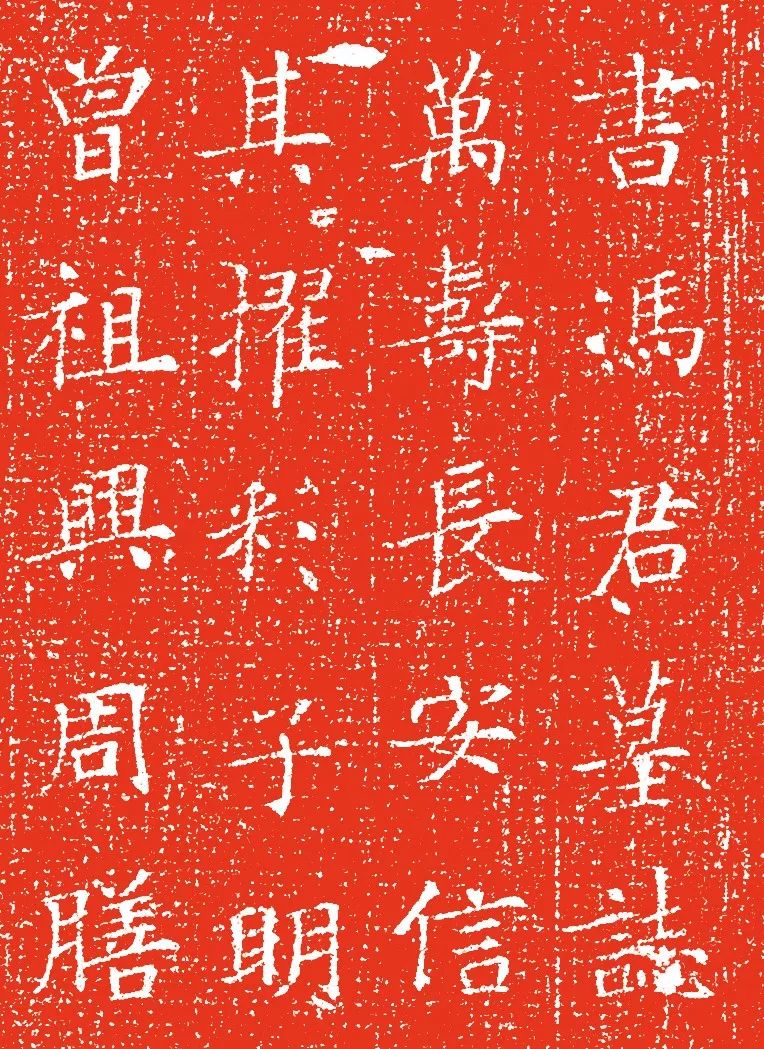 書馮君墓誌
萬壽長安信
其擢子明
曾祖興周膳